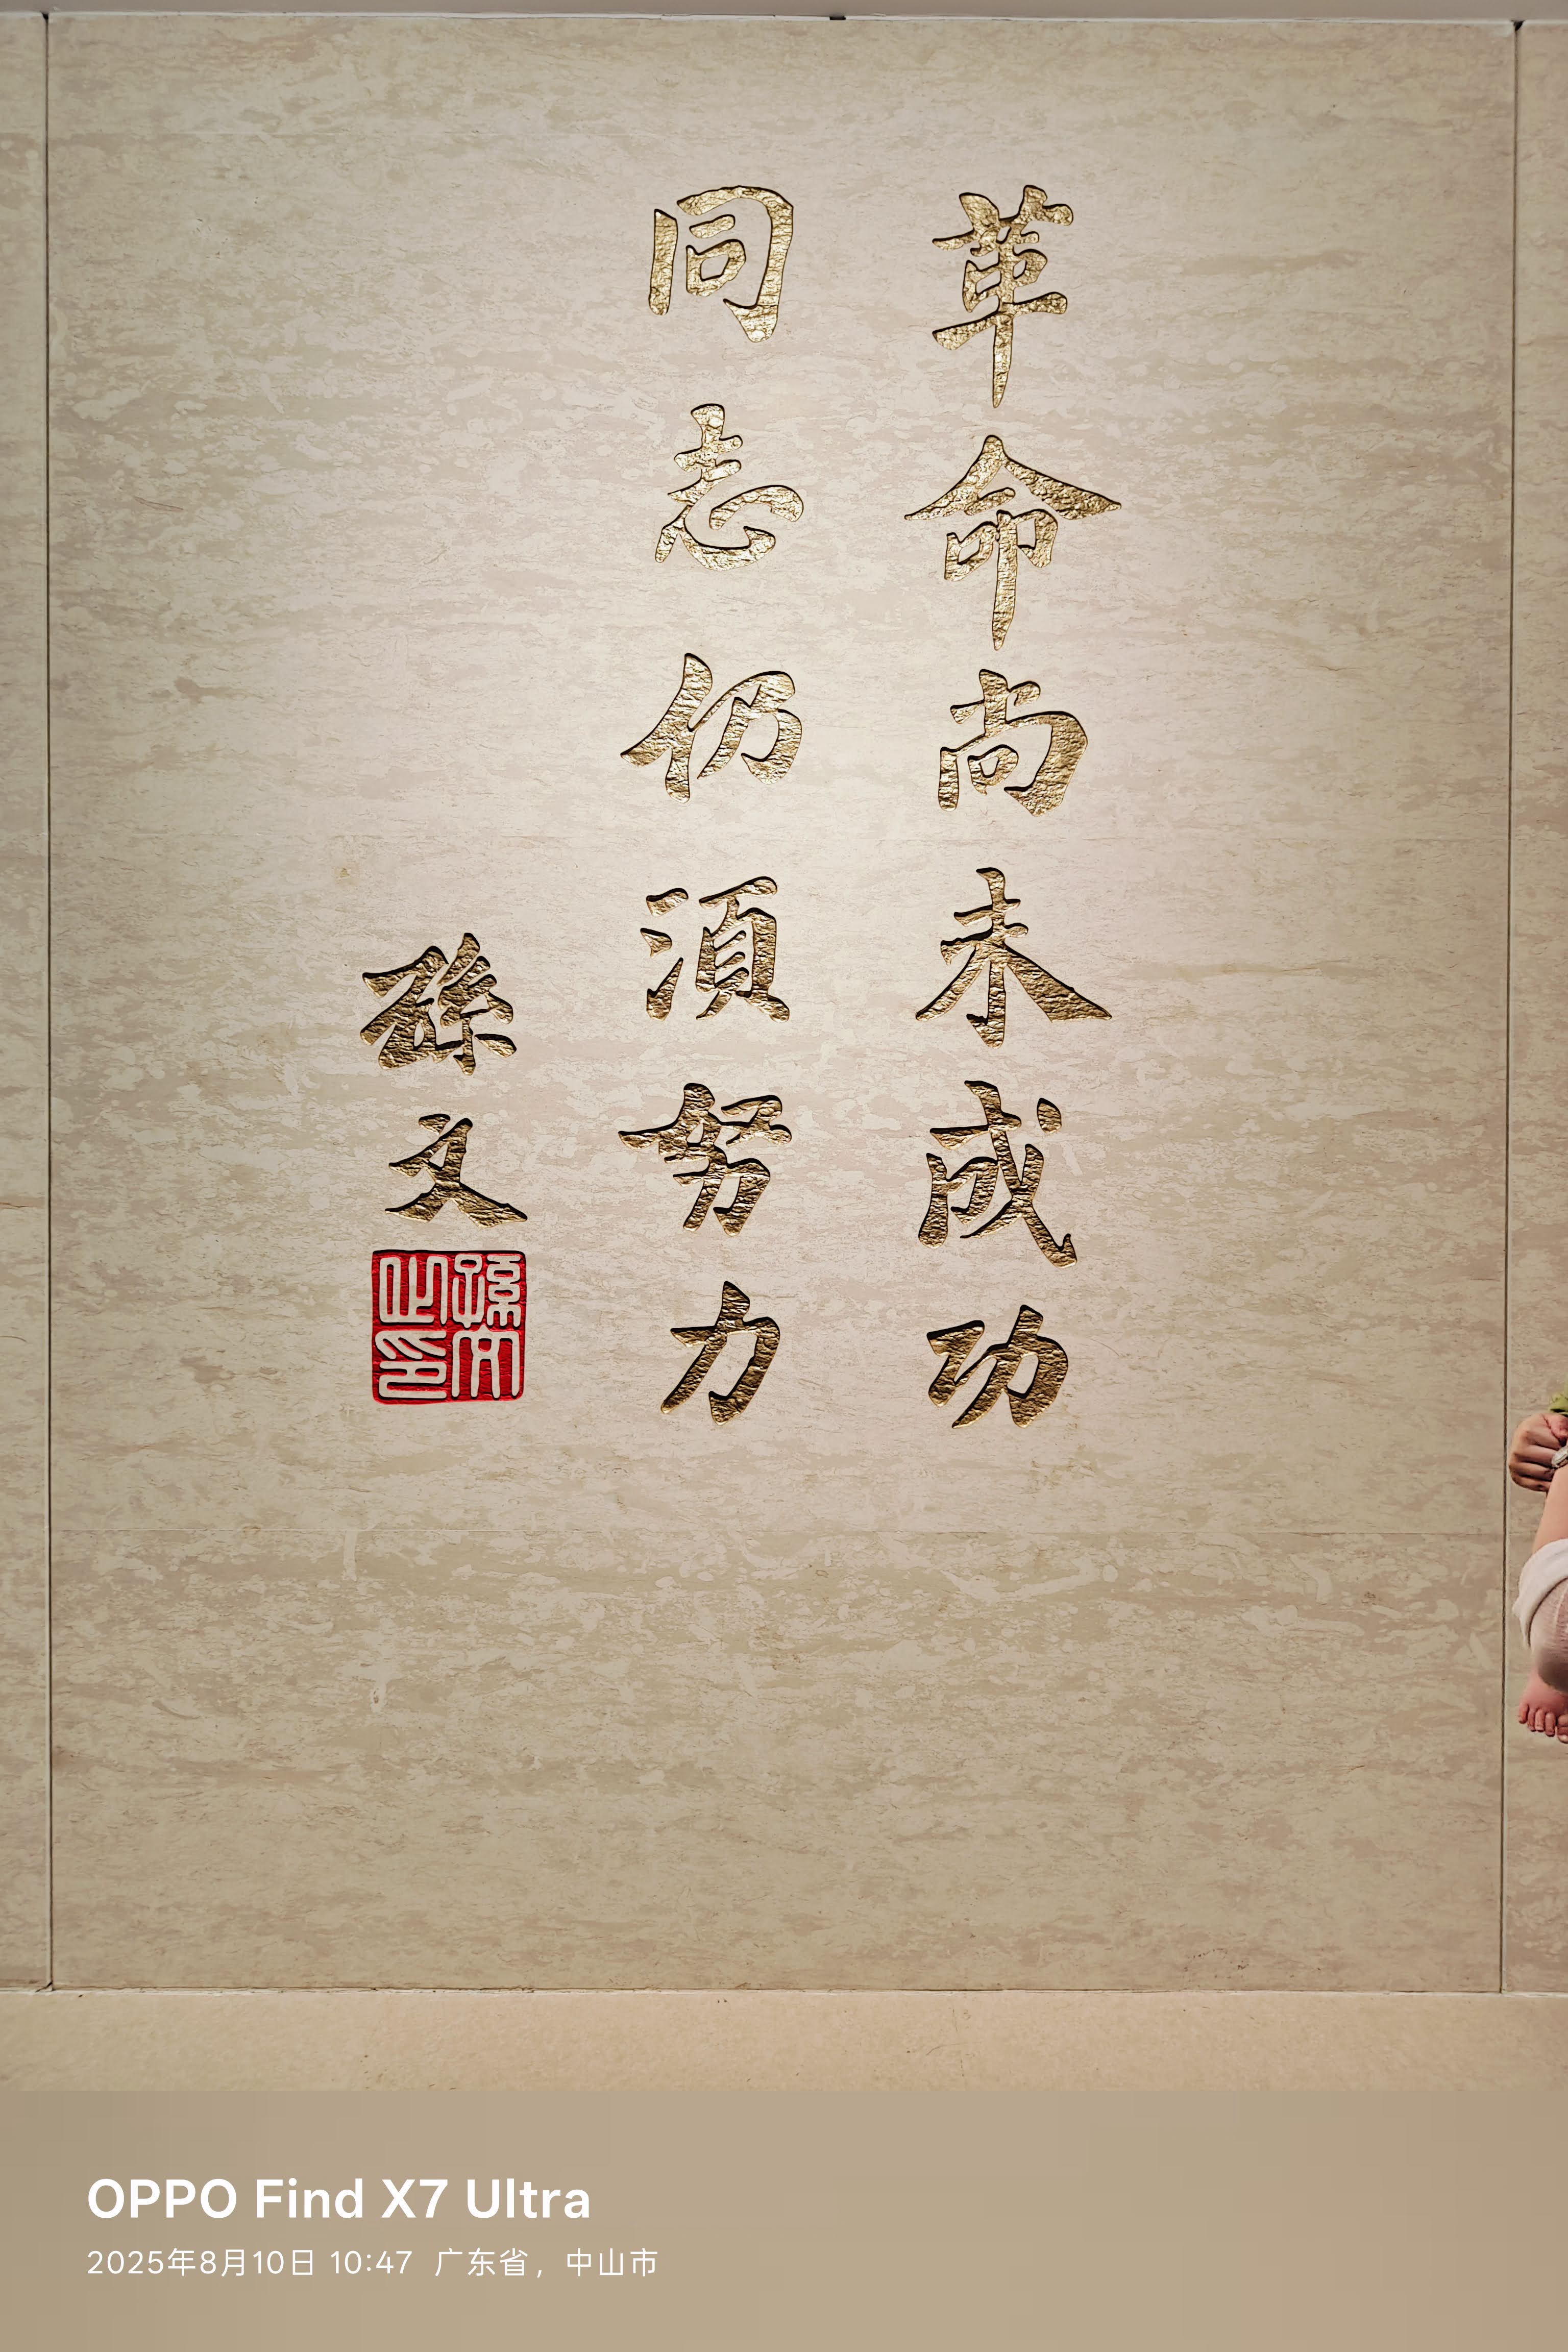 革命尚未成功
同志仍須努力
孫文
孫文之印
OPPO Find X7 Ultra
2025年8月10日 10:47 广东省，中山市